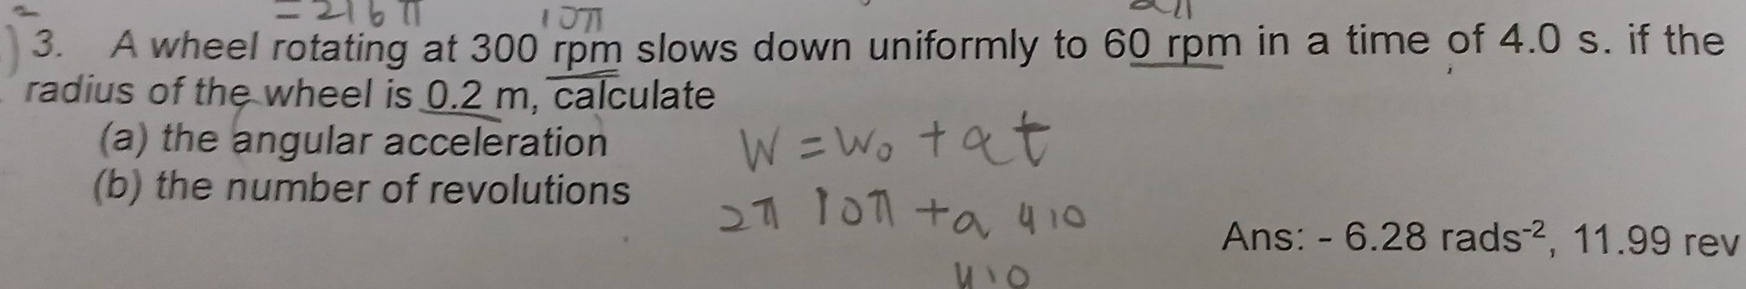 = 216 π
10π
2π
3. A wheel rotating at 300 rpm slows down uniformly to 60 rpm in a time of 4.0 s. if the
radius of the wheel is 0.2 m, calculate
(a) the angular acceleration
W = W₀ + αt
(b) the number of revolutions
2π 10π + a 4.0
Ans: - 6.28 rads⁻², 11.99 rev
4.0